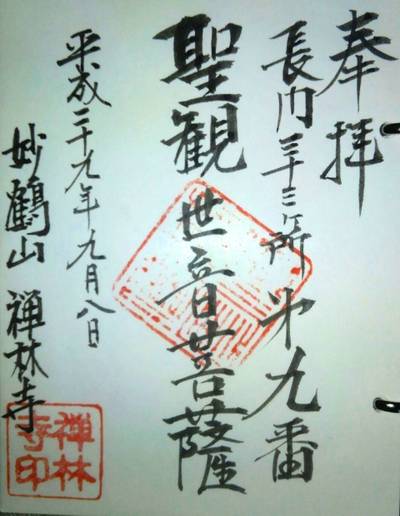 奉拝
長門三十三ヶ所第九番
聖観世音菩薩
平成二十九年九月八日
妙鶴山 禅林寺
禅林
寺印